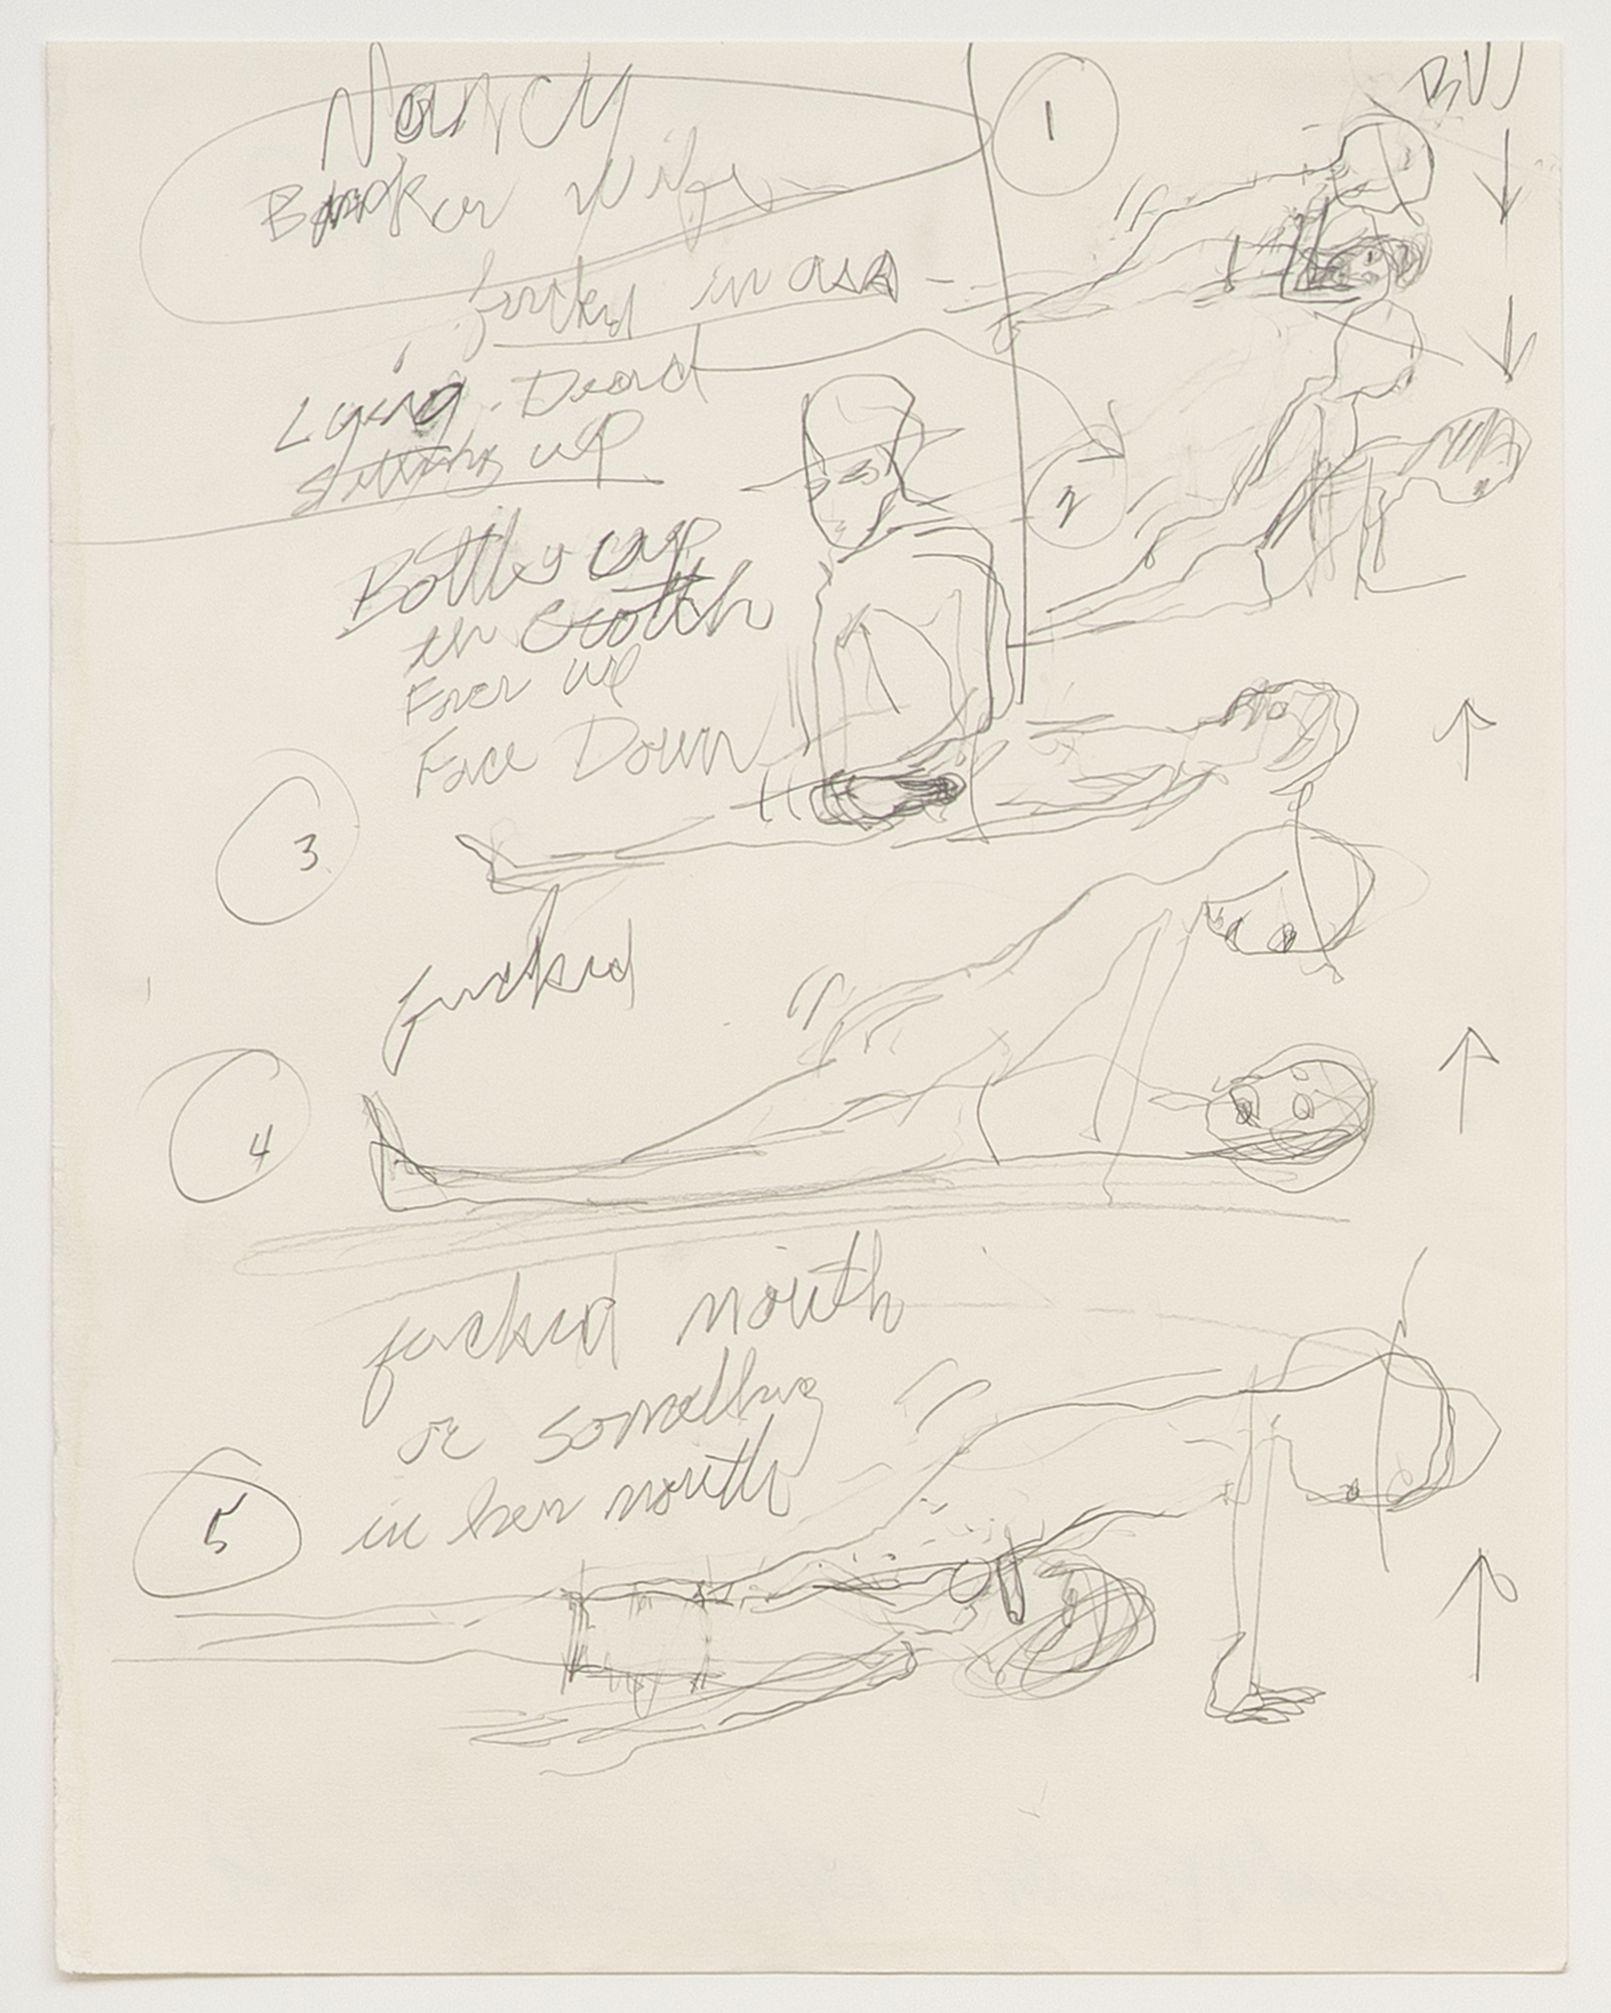 Nancy
Banker Wife
fucked in ass -
Lying. Dead
sitting up
Bottle cap
in crotch
Face up
Face Down
1
2
3
Fucked
4
fucked mouth
or something
in her mouth
5